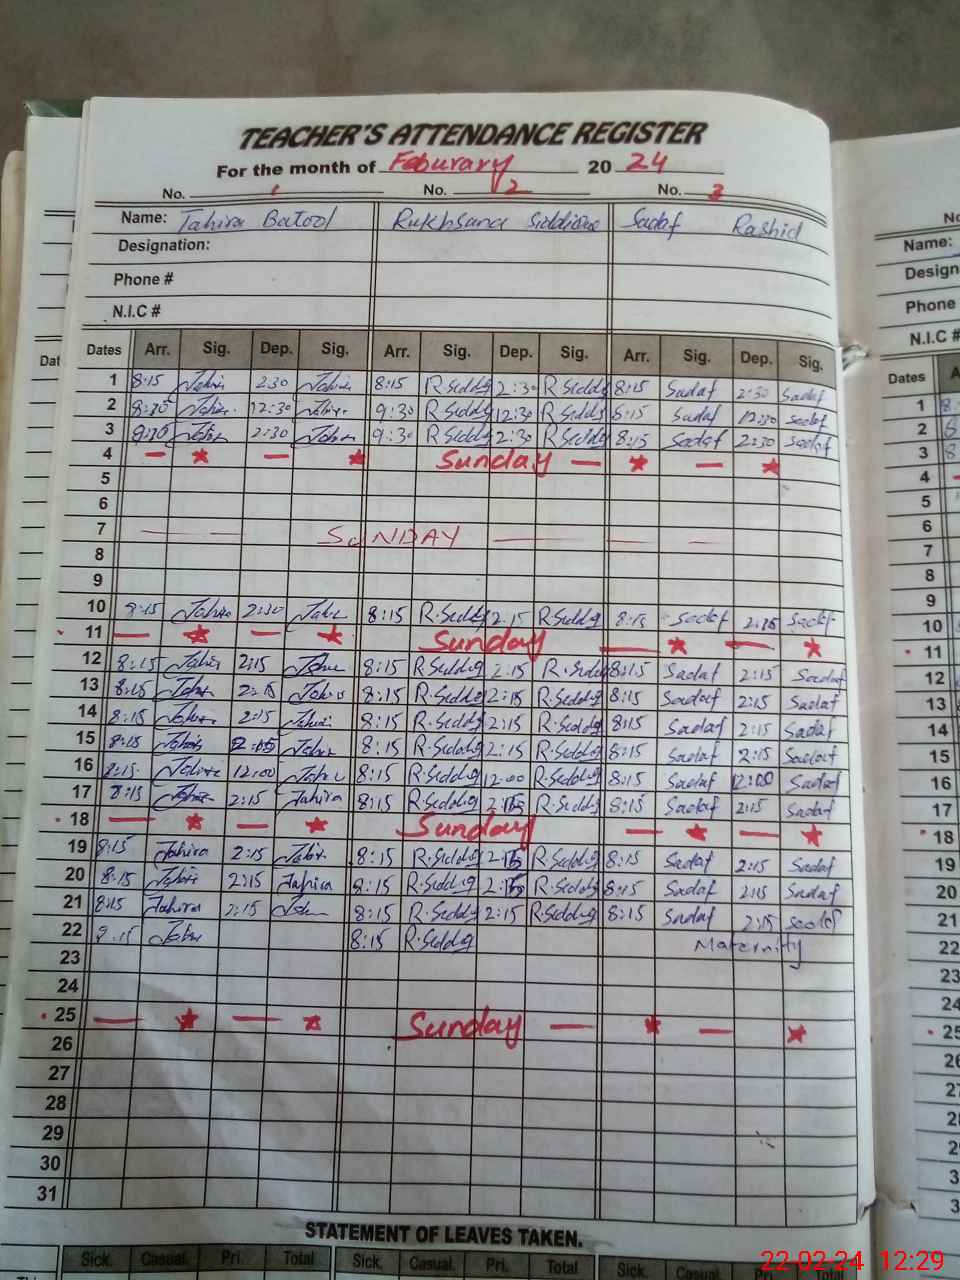 TEACHER'S ATTENDANCE REGISTER
For the month of Feburary 20 24
No. 1 No. 2 No. 3
Name: Tahira Batool Rukhsana Siddique Sadaf Rashid
Designation:
Phone #
N.I.C #
Dates Arr. Sig. Dep. Sig. Arr. Sig. Dep. Sig. Arr. Sig. Dep. Sig.
1 8:15 Tahira 2:30 Tahira 8:15 R Seddig 2:30 R Seddig 8:15 Sadaf 2:30 Sadaf
2 8:30 Tahira 12:30 Tahira 9:30 R Seddig 12:30 R Seddig 8:15 Sadaf 12:30 Sadaf
3 9:30 Tahira 2:30 Tahira 9:30 R Seddig 2:30 R Seddig 8:15 Sadaf 2:30 Sadaf
4 — ★ — ★ Sunday — ★ — ★
5
6
7 — — SUNDAY — — —
8
9
10 8:15 Tahira 2:30 Tahira 8:15 R.Seddig 2.15 R Seddig 8:15 Sadaf 2:15 Sadaf
11 — ★ — ★ Sunday — ★ — ★
12 8:15 Tahira 2:15 Tahira 8:15 R.Seddig 2:15 R.Seddig 8:15 Sadaf 2:15 Sadaf
13 8:15 Tahira 2:15 Tahira 8:15 R.Seddig 2:15 R.Seddig 8:15 Sadaf 2:15 Sadaf
14 8:15 Tahira 2:15 Tahira 8:15 R.Seddig 2:15 R.Seddig 8:15 Sadaf 2:15 Sadaf
15 8:15 Tahira 2:15 Tahira 8:15 R.Seddig 2:15 R.Seddig 8:15 Sadaf 2:15 Sadaf
16 8:15 Tahira 12:00 Tahira 8:15 R.Seddig 12:00 R.Seddig 8:15 Sadaf 12:00 Sadaf
17 8:15 Tahira 2:15 Tahira 8:15 R.Seddig 2:15 R.Seddig 8:15 Sadaf 2:15 Sadaf
18 — ★ — ★ Sunday — ★ — ★
19 8:15 Tahira 2:15 Tahira 8:15 R.Seddig 2:15 R.Seddig 8:15 Sadaf 2:15 Sadaf
20 8:15 Tahira 2:15 Tahira 8:15 R.Seddig 2:15 R.Seddig 8:15 Sadaf 2:15 Sadaf
21 8:15 Tahira 2:15 Tahira 8:15 R.Seddig 2:15 R.Seddig 8:15 Sadaf 2:15 Sadaf
22 8:15 Tahira 8:15 R.Seddig Maternity
23
24
25 — ★ — ★ Sunday — ★ — ★
26
27
28
29
30
31
STATEMENT OF LEAVES TAKEN.
Sick. Casual. Pri. Total Sick. Casual. Pri. Total Sick. Casual. Pri. Total
22-02-24 12:29
Name:
Phone
N.I.C #
Dates
1
2
3
4
5
6
7
8
9
10
11
12
13
14
15
16
17
18
19
20
21
22
23
24
25